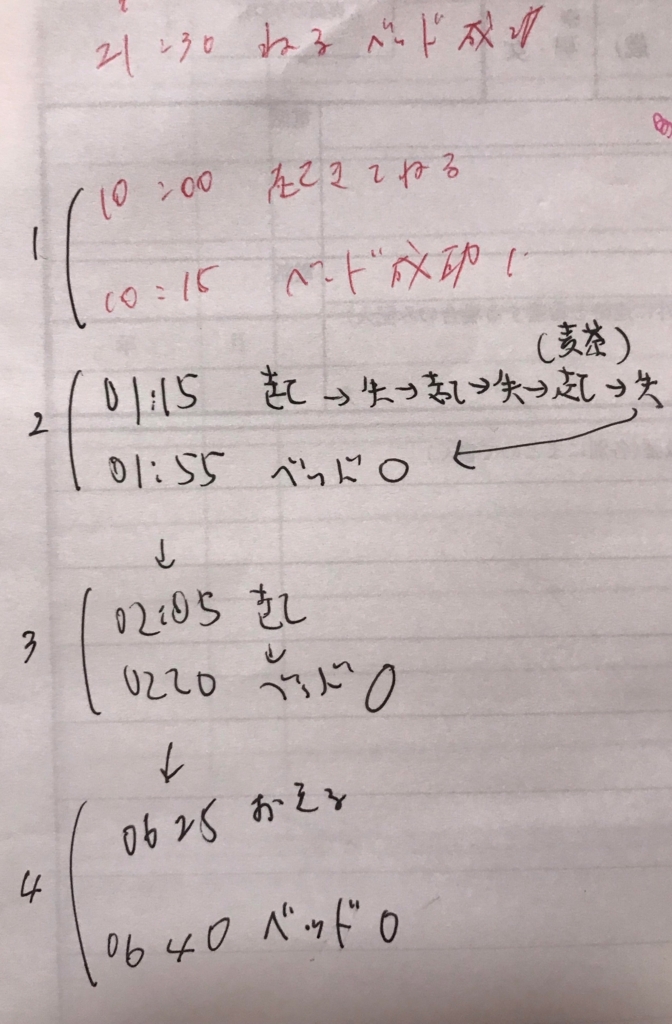 21:30 ねる ベッド成功
1
10:00 起てきてねる
10:15 ベッド成功
(麦茶)
2
01:15 起→失→起→失→起→失
01:55 ベッド○
↓
3
02:05 起
↓
0220 ベッド○
↓
4
0625 おきる
0640 ベッド○